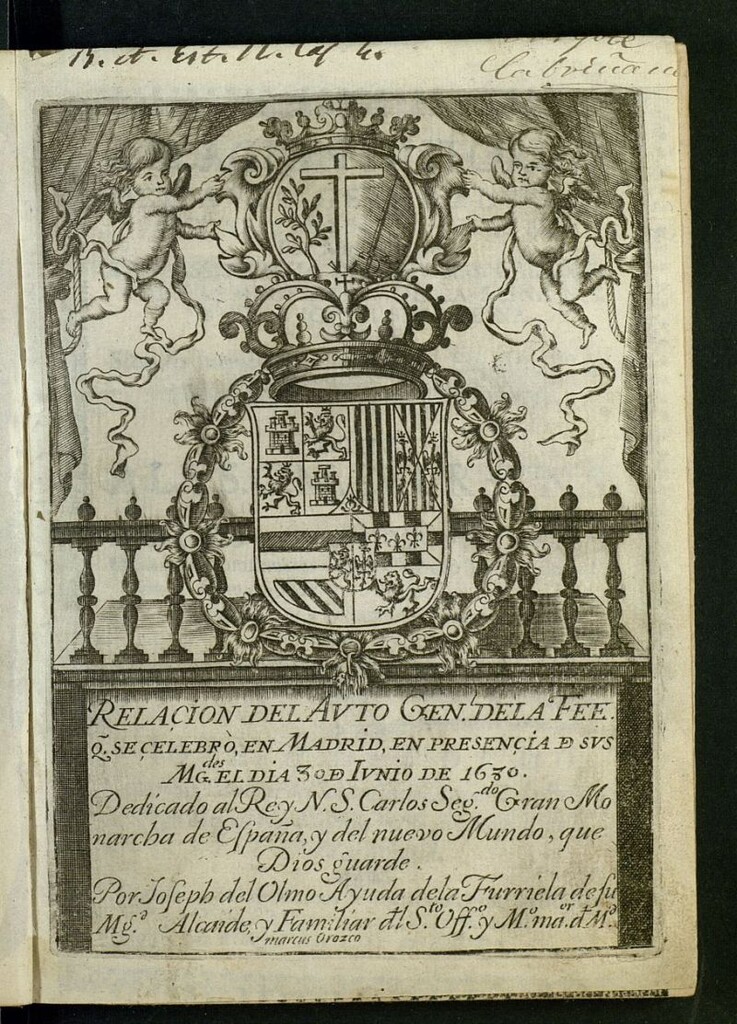 R. A. Est. 11. Caj 4.
RELACION DEL AVTO GEN.l DE LA FEE.
Q̃. SE CELEBRÒ, EN MADRID, EN PRESENÇIA Đ SVS
MG.des EL DIA 30 Đ IVNIO DE 1680.
Dedicado al Rey N. S. Carlos Seg.do Gran Mo
narcha de España, y del nuevo Mundo, que
Dios guarde.
Por Joseph del Olmo Ayuda de la Furriela de su
Mg.d Alcaide, y Familiar đl S.to Off.o y M.o ma.or đ M.d
marcus Orozco